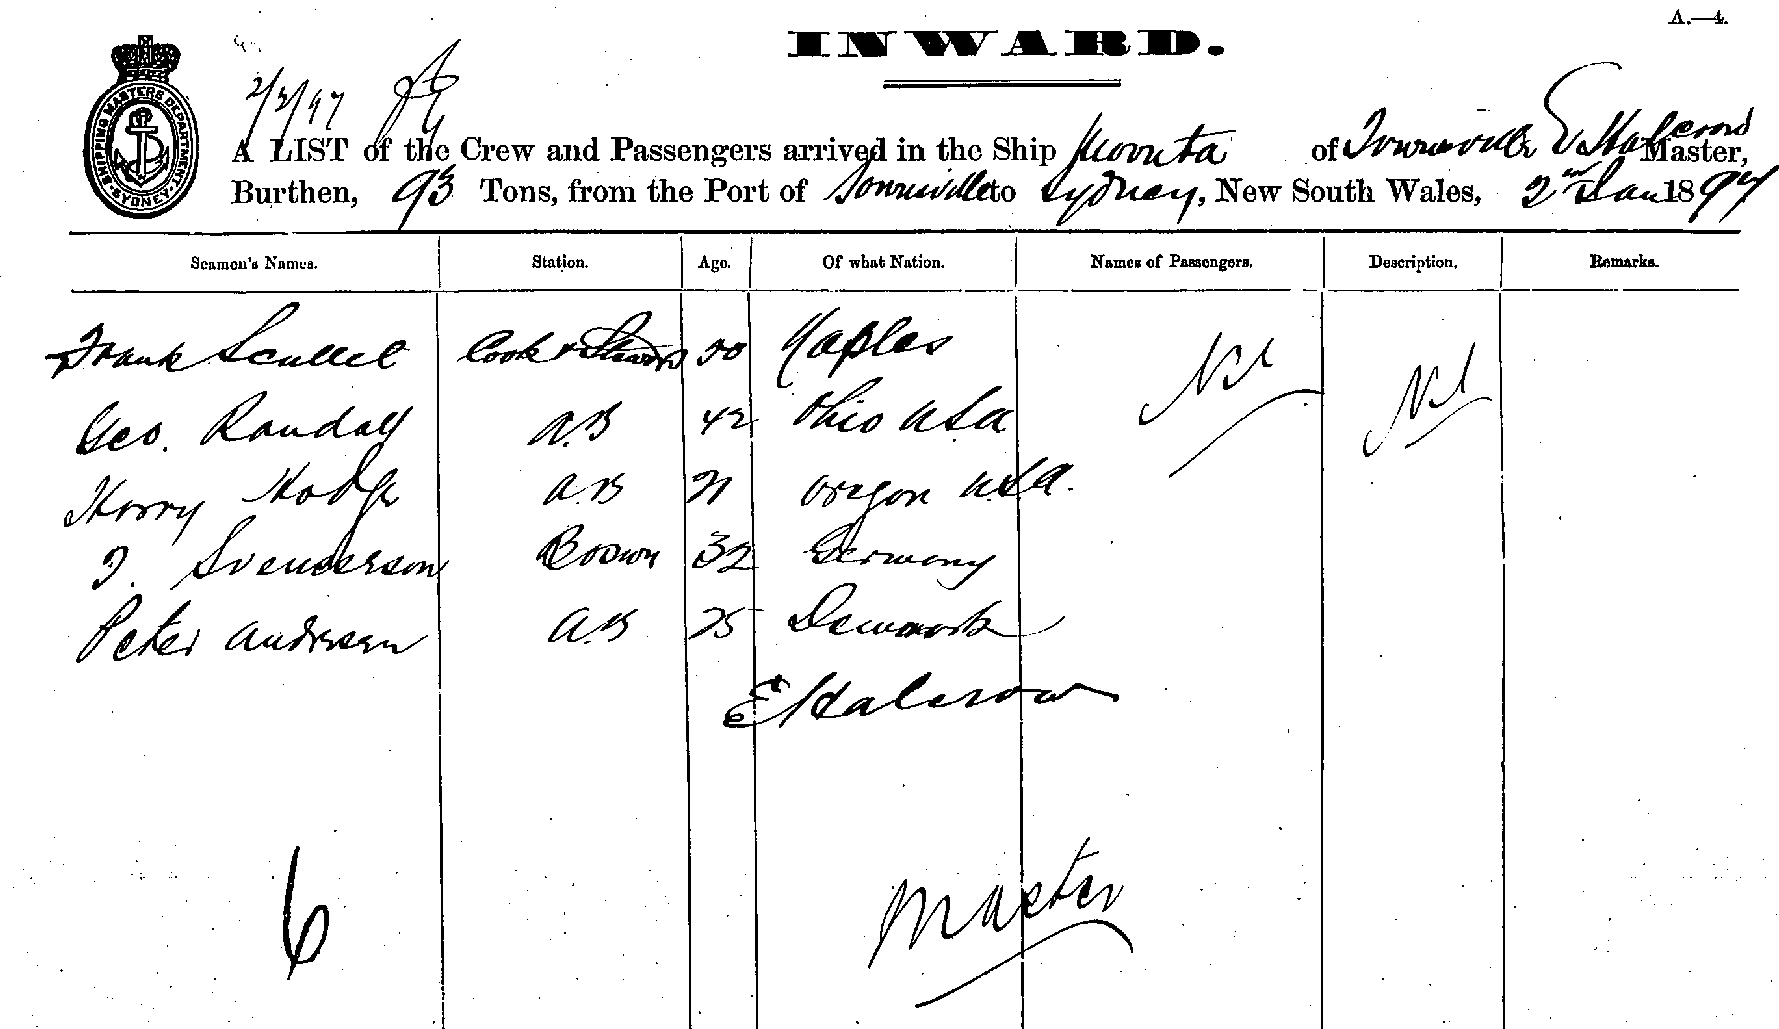 A.—4.
INWARD.
2/2/97
SHIPPING MASTERS DEPARTMENT SYDNEY
A LIST of the Crew and Passengers arrived in the Ship of Townsville E Halcrow Master,
Burthen, 93 Tons, from the Port of Townsville to Sydney, New South Wales, 2nd Jan 1897
Seamen's Names. Station. Age. Of what Nation. Names of Passengers. Description. Remarks.
Frank Cook & Steward Naples Nil Nil
Geo. Randall A.B 42 Ohio USA
Harry Hodge A.B 21 Oregon U.S.A.
J. Svenderson Bosun 32 Germany
Peter Andresen A.B 25 Denmark
E Halcrow
Master
6